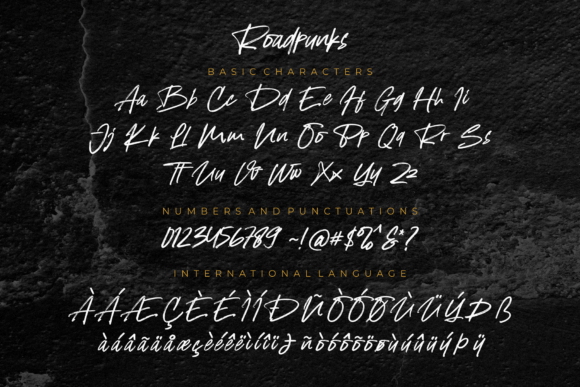 Roadpunks
BASIC CHARACTERS
Aa Bb Cc Dd Ee Ff Gg Hh Ii
Jj Kk Ll Mm Nn Oo Pp Qq Rr Ss
Tt Uu Vv Ww Xx Yy Zz
NUMBERS AND PUNCTUATIONS
0123456789 ~!@#$%^&*?
INTERNATIONAL LANGUAGE
ÀÁÆÇÈÉÌÍÐÑÒÓØÙÜÝÞß
àáâãäåæçèéêëìíîï ñòóôõöøùúûüýþÿ